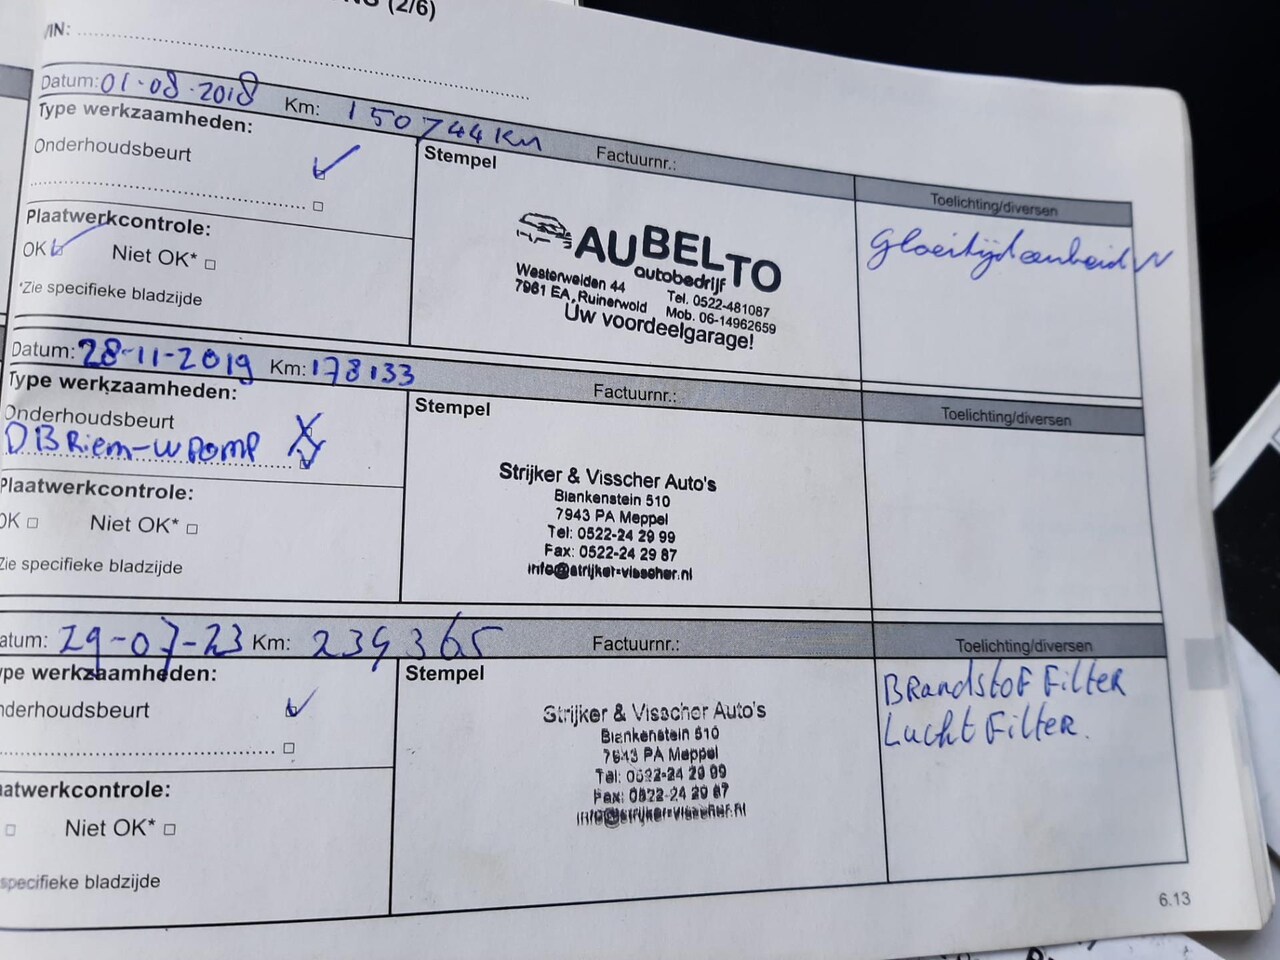 (2/6)
VIN:
Datum: 01-08-2018 Km: 150744 KM
Type werkzaamheden:
Stempel
Factuurnr.:
Toelichting/diversen
Onderhoudsbeurt
Plaatwerkcontrole:
OK Niet OK*
*Zie specifieke bladzijde
AUBELTO
autobedrijf
Westerweiden 44 Tel. 0522-481087
7961 EA, Ruinerwold Mob. 06-14962659
Uw voordeelgarage!
Datum: 28-11-2019 Km: 178133
Type werkzaamheden:
Stempel
Factuurnr.:
Toelichting/diversen
Onderhoudsbeurt
DB Riem-WPOMP
Plaatwerkcontrole:
OK Niet OK*
Zie specifieke bladzijde
Strijker & Visscher Auto's
Blankenstein 510
7943 PA Meppel
Tel: 0522-24 29 99
Fax: 0522-24 29 87
info@strijker-visscher.nl
atum: 29-07-23 Km: 239365
ype werkzaamheden:
Stempel
Factuurnr.:
Toelichting/diversen
nderhoudsbeurt
aatwerkcontrole:
Niet OK*
specifieke bladzijde
Strijker & Visscher Auto's
Blankenstein 510
7943 PA Meppel
Tel: 0522-24 29 99
Fax: 0522-24 29 87
info@strijker-visscher.nl
Brandstof Filter
Lucht Filter.
6.13